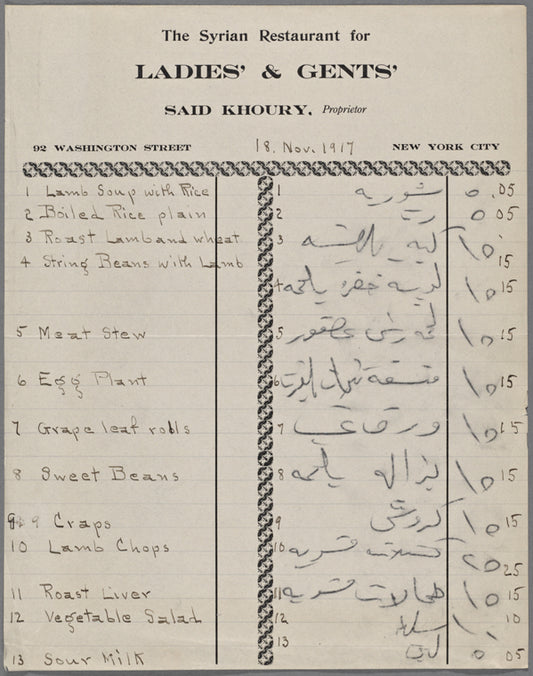 The Syrian Restaurant for
LADIES' & GENTS'
SAID KHOURY, Proprietor
92 WASHINGTON STREET 18. Nov. 1917 NEW YORK CITY
1 Lamb Soup with Rice 1 شوربه ٥ .05
2 Boiled Rice plain 2 رز ٥ 05
3 Roast Lamb and wheat 3 كبه بالصينيه ١٥ 15
4 String Beans with Lamb 4 لوبيه خضره بلحمه ١٥ 15
5 Meat Stew 5 ١٥ 15
6 Egg Plant 6 ١٥ 15
7 Grape leaf rolls 7 ورق ١٥ 15
8 Sweet Beans 8 بزاله بلحمه ١٥ 15
9 9 Craps 9 كروش ١٥ 15
10 Lamb Chops 10 كستلاته مشويه ٢٥ 25
11 Roast Liver 11 طحالات مشويه ١٥ 15
12 Vegetable Salad 12 سلطه ١٠ 10
13 Sour Milk 13 لبن ٥ 05